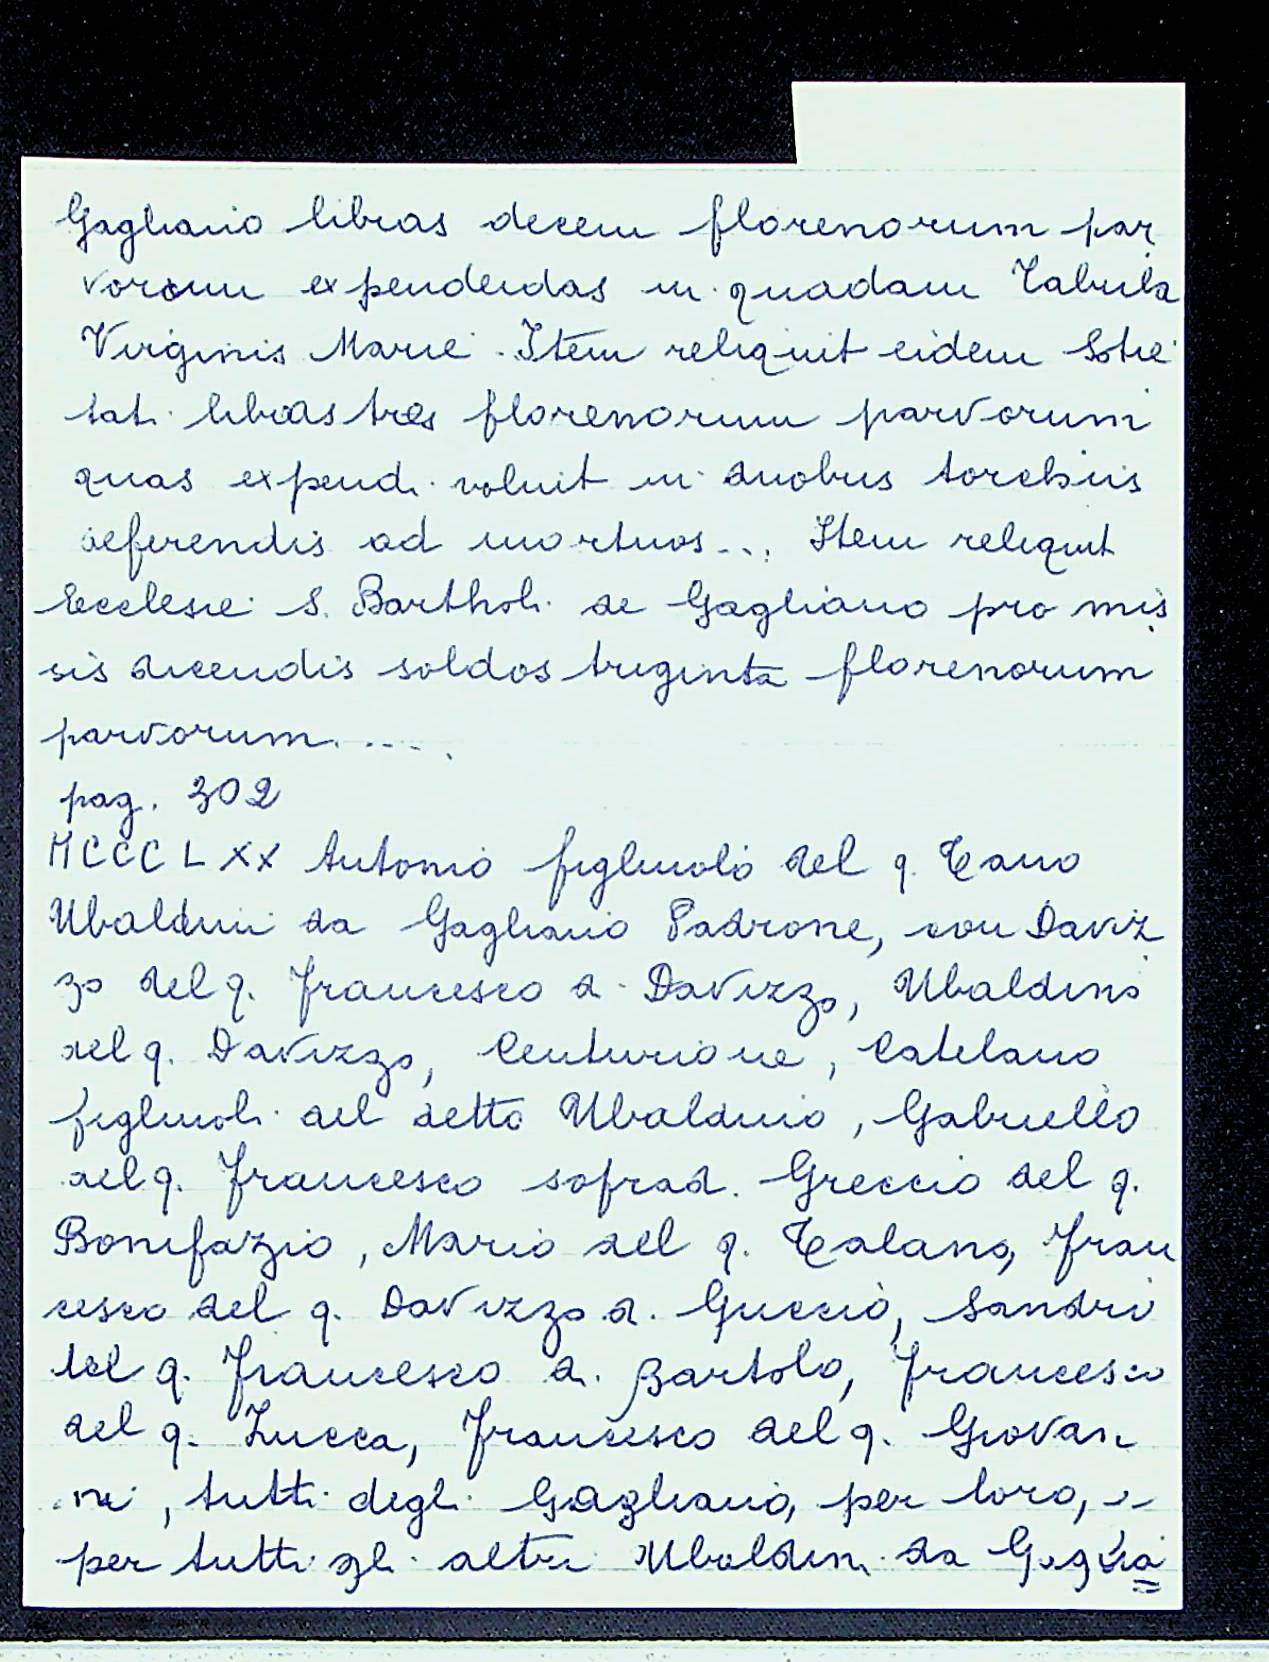 Gagliano libras decem florenorum par
vorum expendendas in quadam Tabula
Virginis Marie. Item reliquit eidem Sotie
tati libras tres florenorum parvorum
quas expendi voluit in duobus torchiis
deferendis ad mortuos... Item reliquit
Ecclesie S. Bartholi de Gagliano pro mis
sis dicendis soldos triginta florenorum
parvorum.....
pag. 302
MCCCLXX Antonio figliuolo del q. Tano
Ubaldini da Gagliano Padrone, con Daviz
zo del q. Francesco d. Davizzo, Ubaldino
del q. Davizzo, Centurione, Catelano
figliuoli del detto Ubaldino, Gabriello
del q. Francesco soprad. Greccio del q.
Bonifazio, Mario del q. Talano, Fran
cesco del q. Davizzo d. Guccio, Sandro
del q. Francesco d. Bartolo, Francesco
del q. Lucca, Francesco del q. Giovan
ni, tutti degli Gagliano, per loro, e
per tutti gli altri Ubaldini da Gaglia